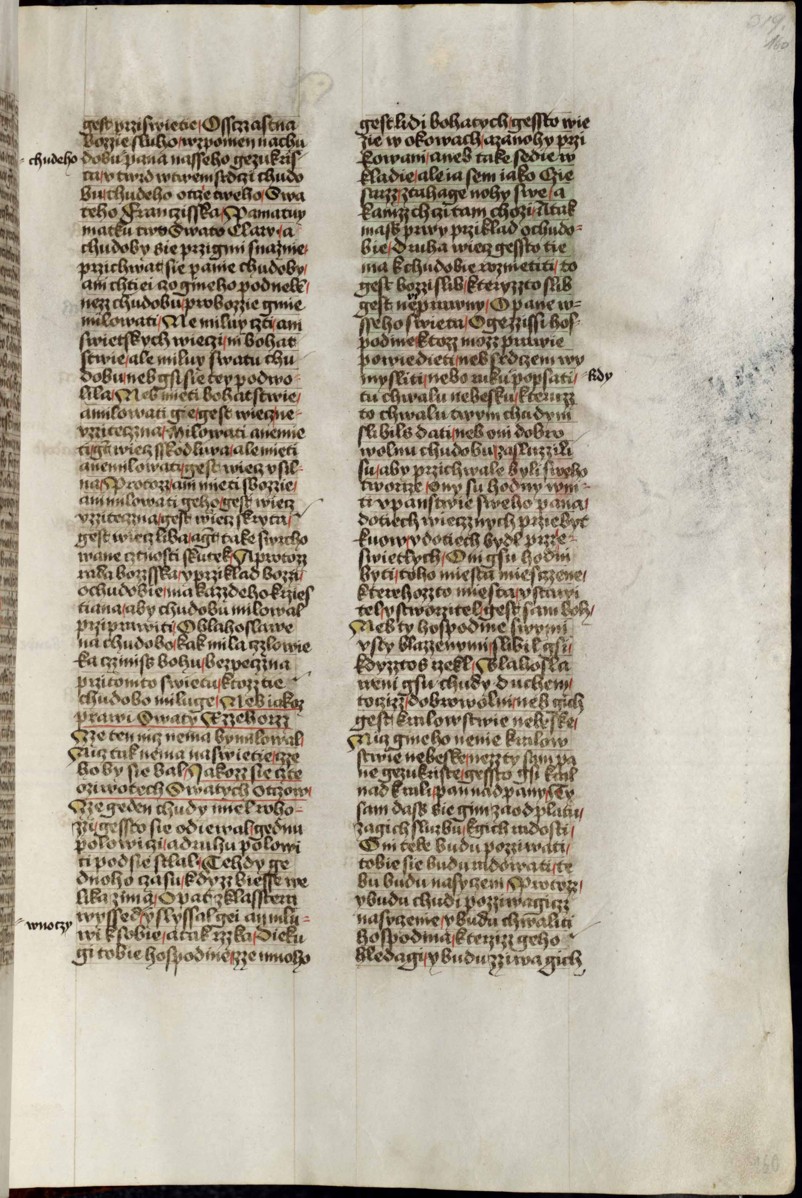 319.
160
gest prziswietie / Ossczastna
bozzie sluho / wzpomen nachu
chudeho
dobu pana nasseho gezukris
ta / y twrd wtwem srdczi chudo
bu / chudeho otcze tweho / Swa
teho Franczisska / Pamatuy
matku twu Swatu Claru / a
chudoby sie przigmi snazne /
przichwat sie panie chudoby /
ani chtiei czo gineho podnebē /
nezz chudobu / probozzie gmie
milowati / Ne miluy czti / ani
swietskych wieczi / ni bohat
stwie / ale miluy swatu chu
dobu / neb gsi sie tey podwo
lila / Neb mieti bohatstwie /
a milowati gie / gest wiecz ne
vzziteczna / Milowati a nemie
ti / gt wiecz sskodliwa / ale mieti
a nemilowati / gest wiecz vsil
na / Protozz / ani mieti sbozzie /
ani milowati geho / gest wiecz
vzziteczna / gest wiecz skryta /
gest wiecz liba / a gt take swrcho
wane cztnosti skutek / A protozz
rada bozzsska / y prziklad bozzi /
ochudobie / ma kazzdeho krzies
tiana / aby chudobu milowal
prziprawiti / O blahoslawe
na chudobo / kak mila czlowie
ka cziniss bohu / bezpeczna
przitomto swietu / ktozz tie
chudobo miluge / Neb iakoz
prawi Swaty Rzehorzz
Zze ten nicz nema by milowal /
Nicz tak nema naswietie / zze
ho by sie bal / Jakozz sie czte
oziwotech Swatych otczow /
Zze geden chudy miel roho
zzi / gessto sie odiewal / gednu
polowiczi / a druhu polowi
ti podsie stlal / Tehdy ge
dnoho czasu / kdyzz biesse we
lika zima / Opat z klasstera
wnoczy
wyssed / y slyssal gei a mlu
wi k sobie / a tak rzka / Dieku
gi tobie hospodine / zze mnoho
gest lidi bohatych / gessto wie
zie w okowach / a za nohy przi
kowani / aneb take sedie w
kladie / ale ia sem iako Czie
sarz / ztahage nohy swe / a
kamzz chczi tam chozi / A tak
mass prwy prziklad ochudo
bie / Druha wiecz gessto tie
ma k chudobie roznietiti / to
gest bozzi slib / kteryzto slib
gest nēprawny / O pane w
sseho swieta / O gezzissi hos
podine / ktozz mozz prawie
powiedieti / neb srdczem wy
mysliti / nebo ruku popsati /
kdy
tu chwalu nebesku / kteruzz
to chwalu twym chudym
slibils dati / neb oni dobro
wolnu chudobu / zasluzzili
su / aby przichwale byli sweho
tworcze / Ony su hodny wni
ti v panstwie sweho pana /
dotiech wiecznych przieby
tkuow / y dotiech bydl prze
swietlych / Oni gsu hodni
byti / toho miesta miesczene /
kterhozto miesta / ystawi
tel y stworzitel / gest sam boh /
Neb ty hospodine swymi
vsty blazzenymi / slibil gsi /
kdyzztos rzekl / Blahosla
weni gsu chudy duchem /
toczizz / dobrowolni / neb gich
gest kralowstwie nebeske /
Nicz gineho nenie kralow
stwie nebeske / nezz ty sam pa
ne gezukriste / gessto gsi kral
nad krali / pan nad pany / Ty
sam dass sie gim za odplatu /
za gich sluzbu / k gich radosti /
Oni tebe budu pozziwati /
tobie sie budu radowati / te
bu budu nasyczeni / Protozz /
ybudu chudi pozziwagicz
nasyczenie / y budu chwaliti
hospodina / kterzizz geho
hledagi / y budu zziwa gich
160